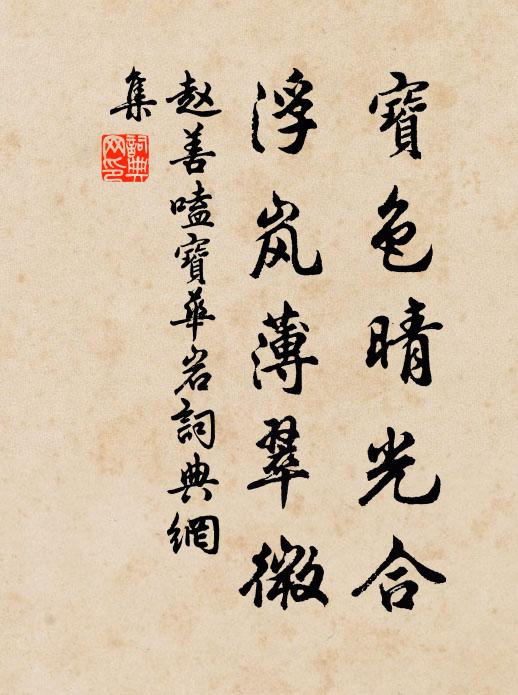 寶色晴光合
浮岚薄翠微
赵善嗑寶華岩詞典網
集
詞典
网印